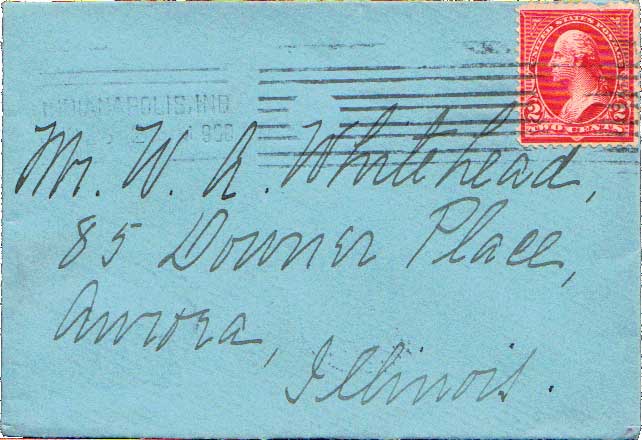 UNITED STATES POSTAGE
2 2
TWO CENTS
INDIANAPOLIS, IND
Mr. W. A. Whitehead,
85 Downer Place,
Aurora,
Illinois.